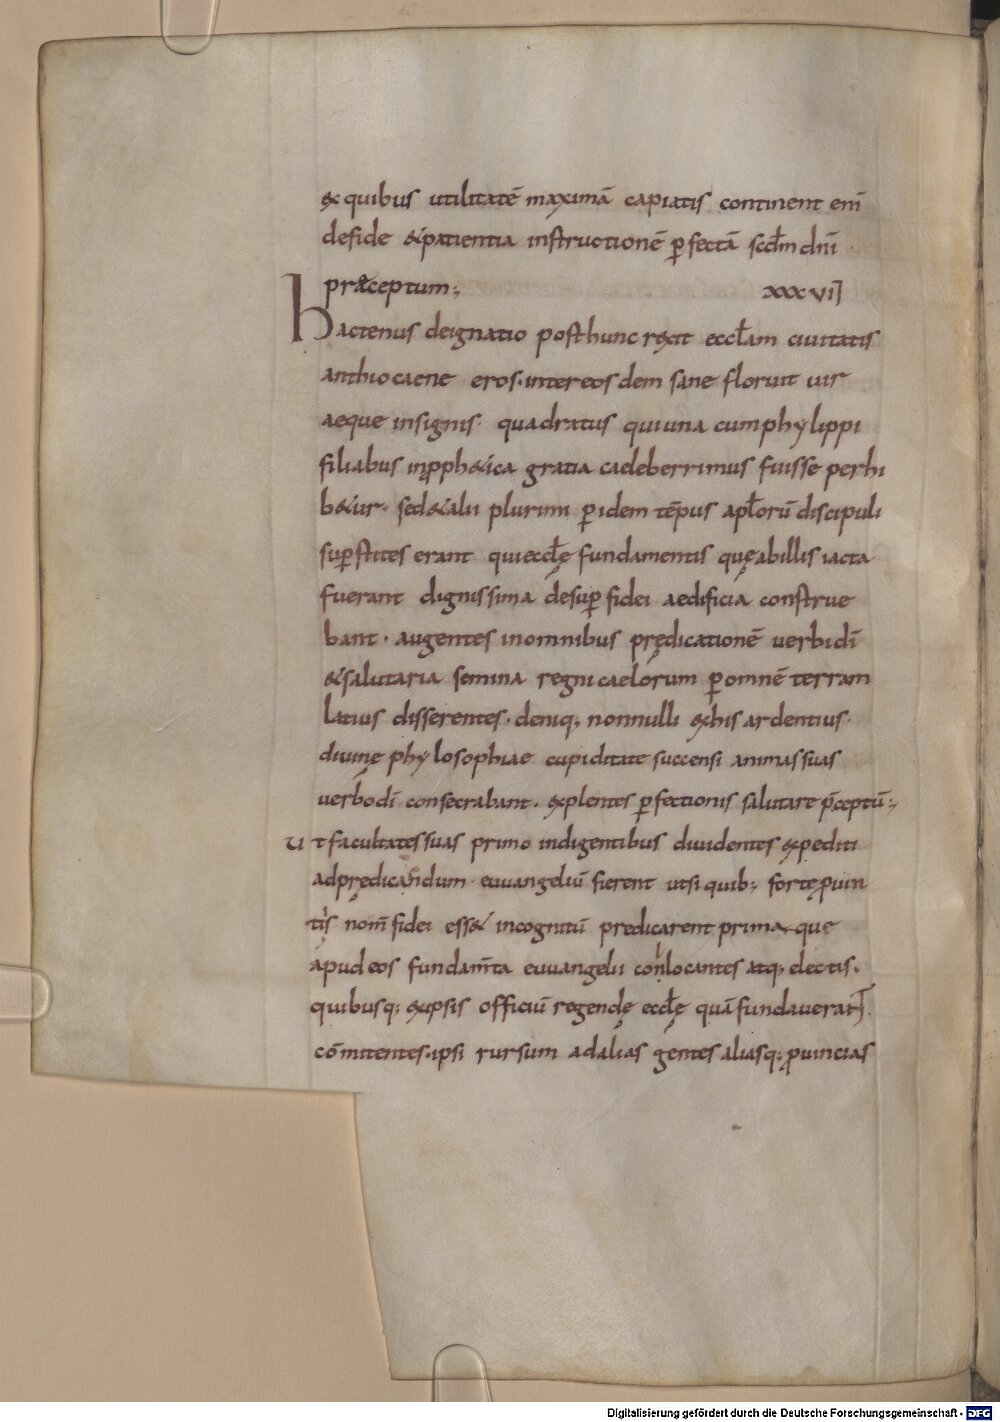 &x quibus utilitatē maximā capiatis continent enī
defide &patientia instructionē ꝑfectā scd̄m dn̄i
præceptum:,
xxxvii
hactenus deignatio posthunc rexit eccl̄am ciuitatis
anthiocaene eros. intereosdem sane floruit uir
aeque insignis· quadratus quiuna cumphylippi
filiabus inꝓph&ica gratia caeleberrimus fuisse perhi
b&ur· sed&alii plurimi ꝑidem tēpus apl̄orū discipuli
suꝑstites erant quieccl̄ę fundamentis quęabillis iacta
fuerant dignissima desuꝑ fidei aedificia construe
bant· augentes inomnibus prędicationē uerbi dī
&salutaria semina regni caelorum ꝑomnē terram
latius disserentes· deniq; nonnulli exhis ardentius
diuinę phylosophiae cupiditate succensi animassuas
uerbo dī consecrabant. explentes ꝑfectionis salutare p̄ceptū:,
ut facultatessuas primo indigentibus diuidentes expediti
adprędicandum euuangeliū fierent utsi quib; forteꝓuin
tiis nom̄ fidei ess& incognitū predicarent prima que
apud eos fundam̄ta euuangelii conlocantes atq; electis.
quibusq; exipsis officiū regendę eccl̄ę quā fundauerant
cōmitentes. ipsi rursum adalias gentes aliasq; ꝓuincias
Digitalisierung gefördert durch die Deutsche Forschungsgemeinschaft - DFG